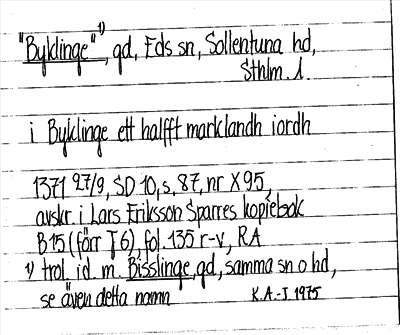 "Byklinge"¹⁾, gd, Eds sn, Sollentuna hd,
Sthlm. l.
i Byklinge ett halfft marklandh iordh
1371 27/9, SD 10, s. 87, nr X 95,
avskr. i Lars Eriksson Sparres kopiebok
B 15 (förr T 6), fol. 135 r-v, RA
¹⁾ trol. id. m. Bisslinge, gd, samma sn o hd,
se även detta namn
K.A.-J. 1975